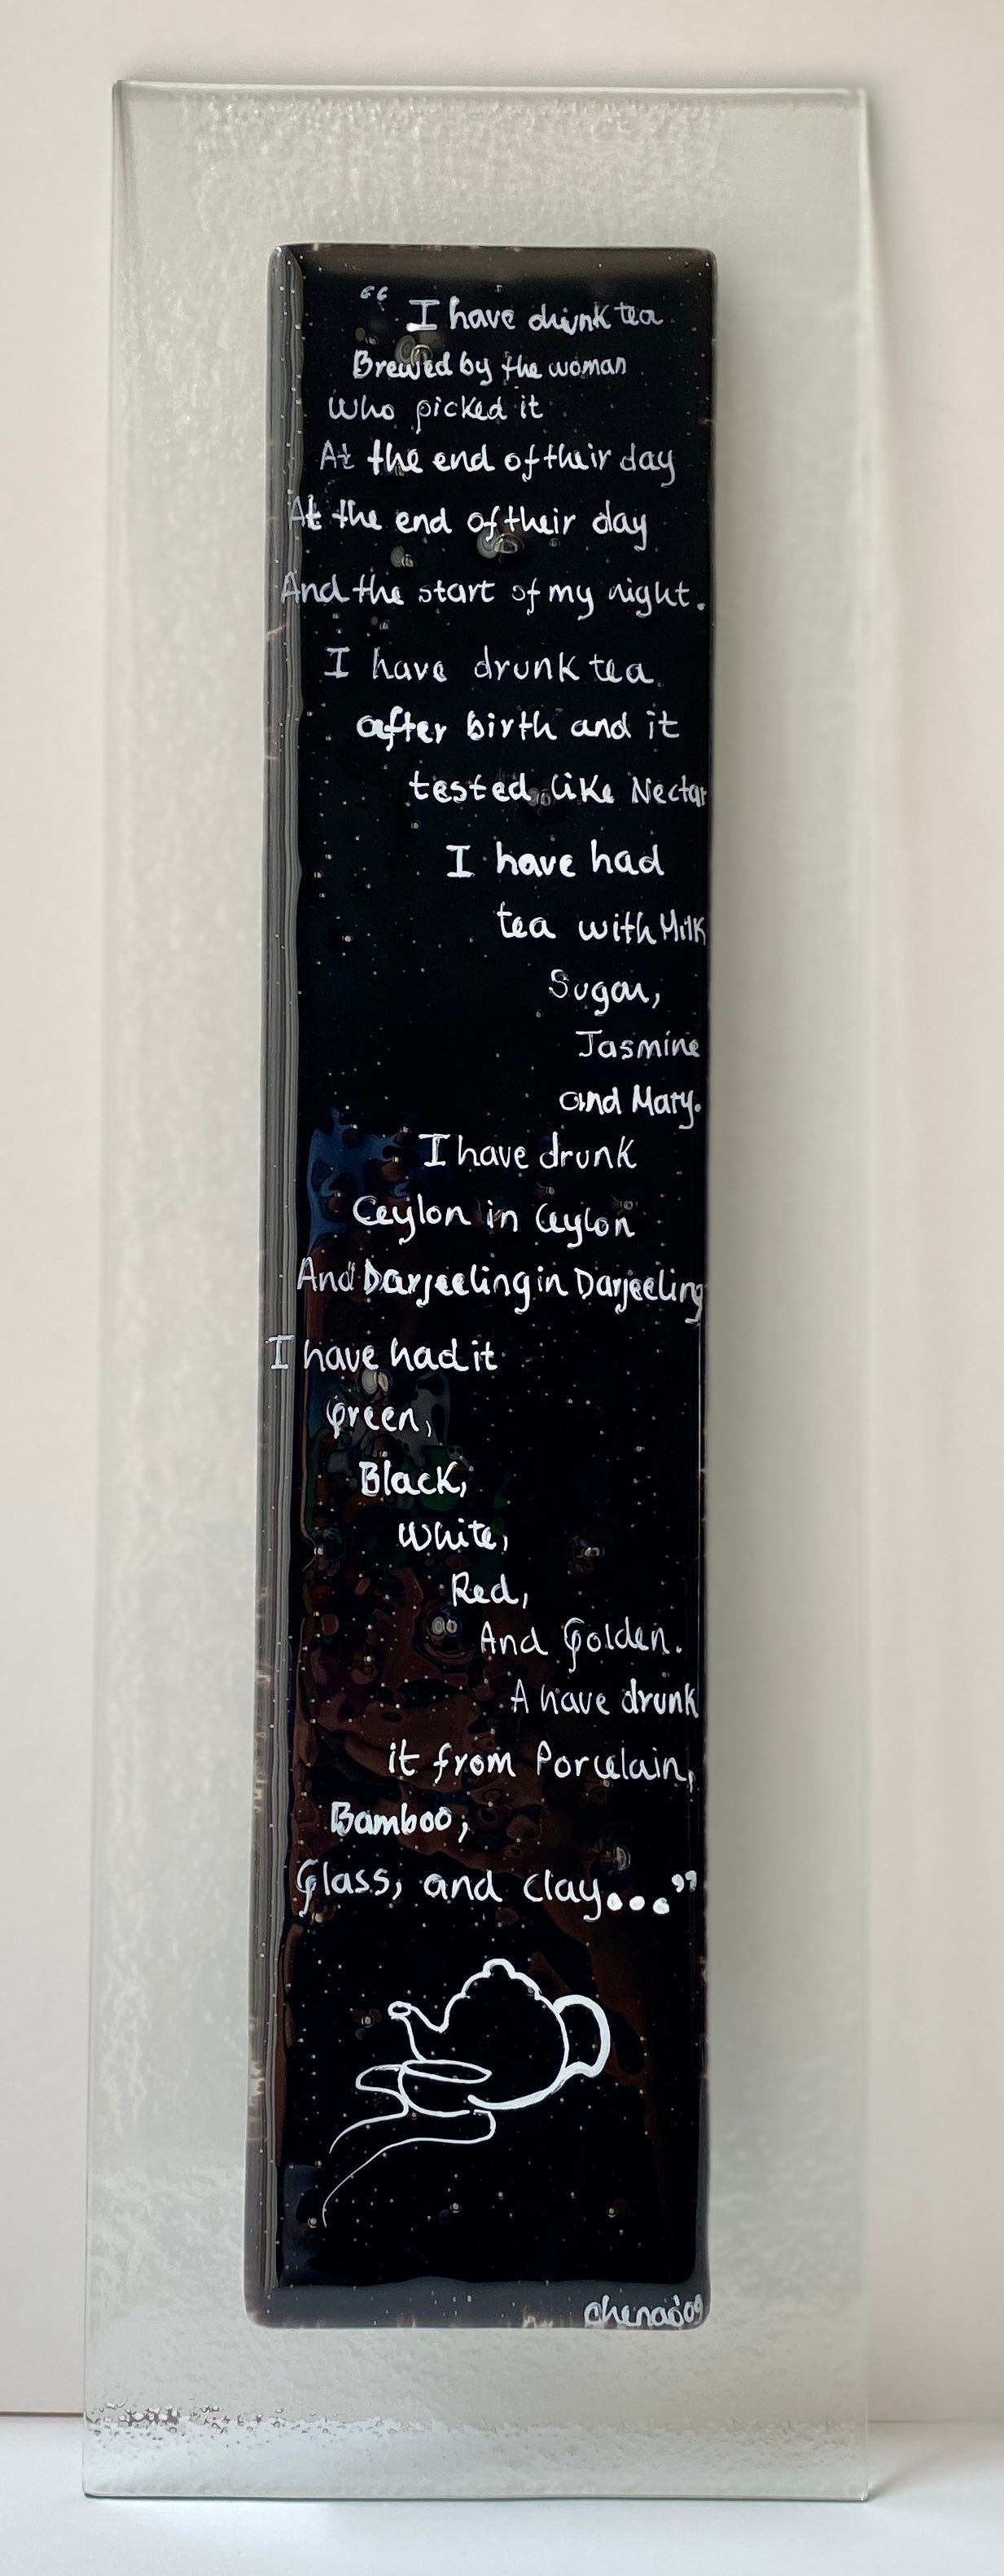 “ I have drunk tea
Brewed by the woman
Who picked it
At the end of their day
At the end of their day
And the start of my night.
I have drunk tea
after birth and it
tested like Nectar
I have had
tea with Milk
Sugar,
Jasmine
and Mary.
I have drunk
Ceylon in Ceylon
And Darjeeling in Darjeeling
I have had it
Green,
Black,
White,
Red,
And Golden.
A have drunk
it from Porcelain,
Bamboo,
Glass, and clay...”
chenao'09